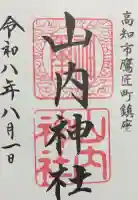 高知市鷹匠町鎮座
山内神社
令和八年八月一日
山内
神社